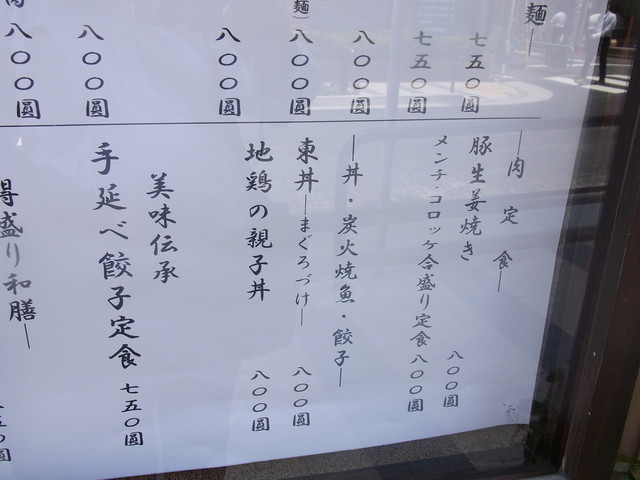 麺―
七五〇圓
七五〇圓
八〇〇圓
麺）
八〇〇圓
八〇〇圓
八〇〇圓
八〇〇圓
―肉定食―
豚生姜焼き 八〇〇圓
メンチ・コロッケ合盛り定食 八〇〇圓
―丼・炭火焼魚・餃子―
東丼―まぐろづけ― 八〇〇圓
地鶏の親子丼 八〇〇圓
美味伝承
手延べ餃子定食 七五〇圓
得盛り和膳―